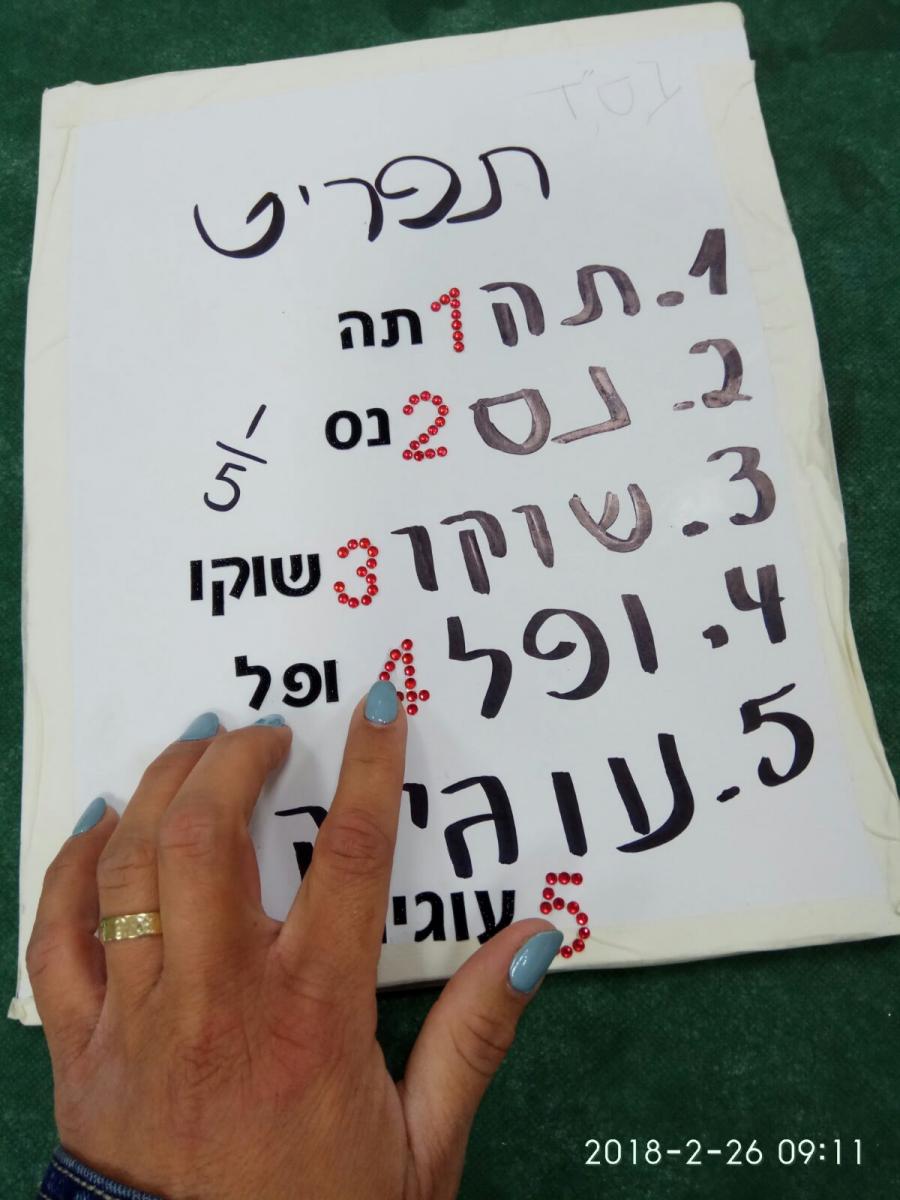 בס"ד
תפריט
1. תה 1 תה
2. נס 2 נס
5/-
3. שוקו 3 שוקו
4. ופל 4 ופל
5.
5
2018-2-26 09:11